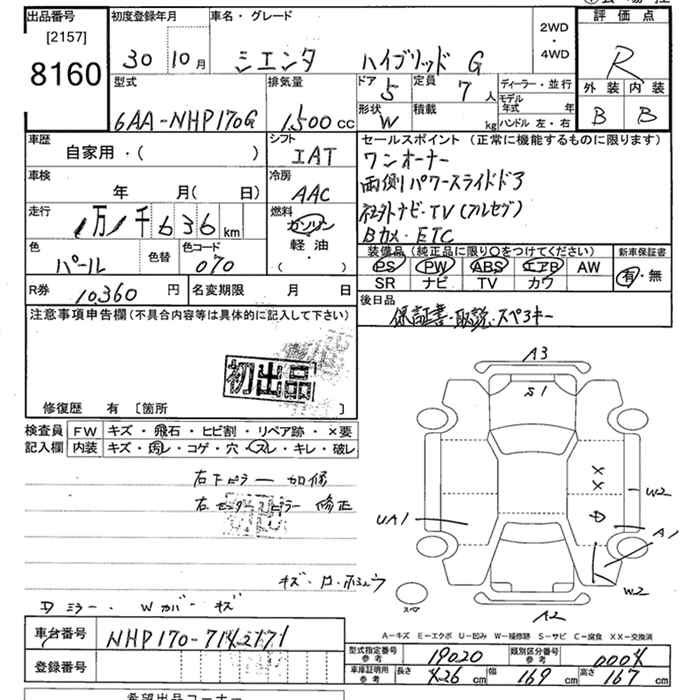 出品番号
[2157]
8160
初度登録年月
30年 10月
車名・グレード
シエンタ ハイブリッド G
2WD
・
4WD
評価点
R
外装 内装
B B
型式
6AA-NHP170G
排気量
1,500 cc
ドア 5
定員 7 人
形状 W
積載 kg
ディーラー・並行
モデル年式 年
ハンドル 左・右
車歴
自家用・( )
シフト
IAT
車検
年 月( 日)
冷房
AAC
走行
1万1千636km
燃料
ガソリン
軽油
・
( )
色
パール
色替
色コード
070
R券 10,360 円
名変期限 月 日
セールスポイント(正常に機能するものに限ります)
ワンオーナー
両側パワースライドドア
社外ナビ・TV(フルセグ)
Bカメ・ETC
装備品(純正品に限り○をつけてください)
PS PW ABS エアB AW
SR ナビ TV カワ
新車保証書
有・無
後日品
保証書・取説・スペアキー
注意事項申告欄(不具合内容等は具体的に記入して下さい)
初出品
修復歴 有 [箇所 ]
検査員記入欄
FW キズ・飛石・ヒビ割・リペア跡・×要
内装 キズ・汚レ・コゲ・穴・スレ・キレ・破レ
右下ピラー 加修
右センターピラー 修正
Dミラー・Wカバーキズ
A3
S1
X
X
W2
UA1
A1
W2
A2
スペア
A-キズ E-エクボ U-凹み W-補修跡 S-サビ C-腐食 XX-交換済
車台番号 NHP170-7142171
登録番号
型式指定番号 参考 19020
類別区分番号 参考 0004
車庫証明用 参考 長さ 426 cm 幅 169 cm 高さ 167 cm
希望出品コーナー